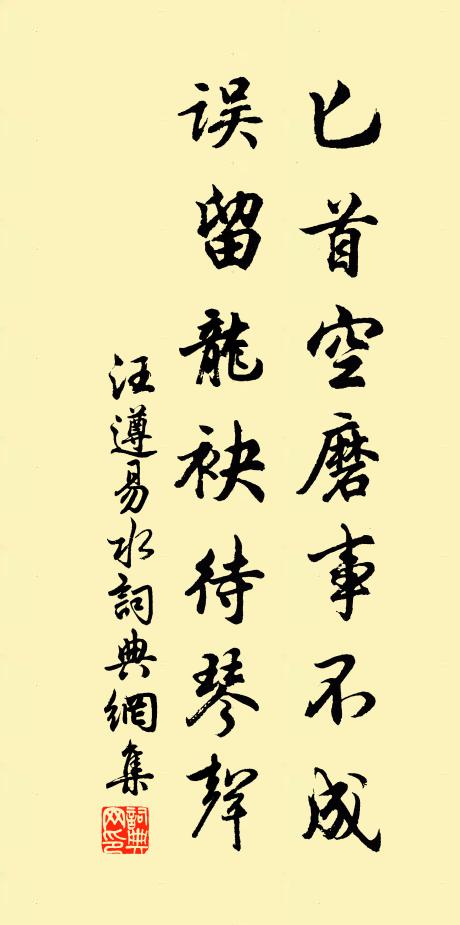 匕首空磨事不成
误留龍袂待琴聲
汪遵易水詞典網集
詞典網印